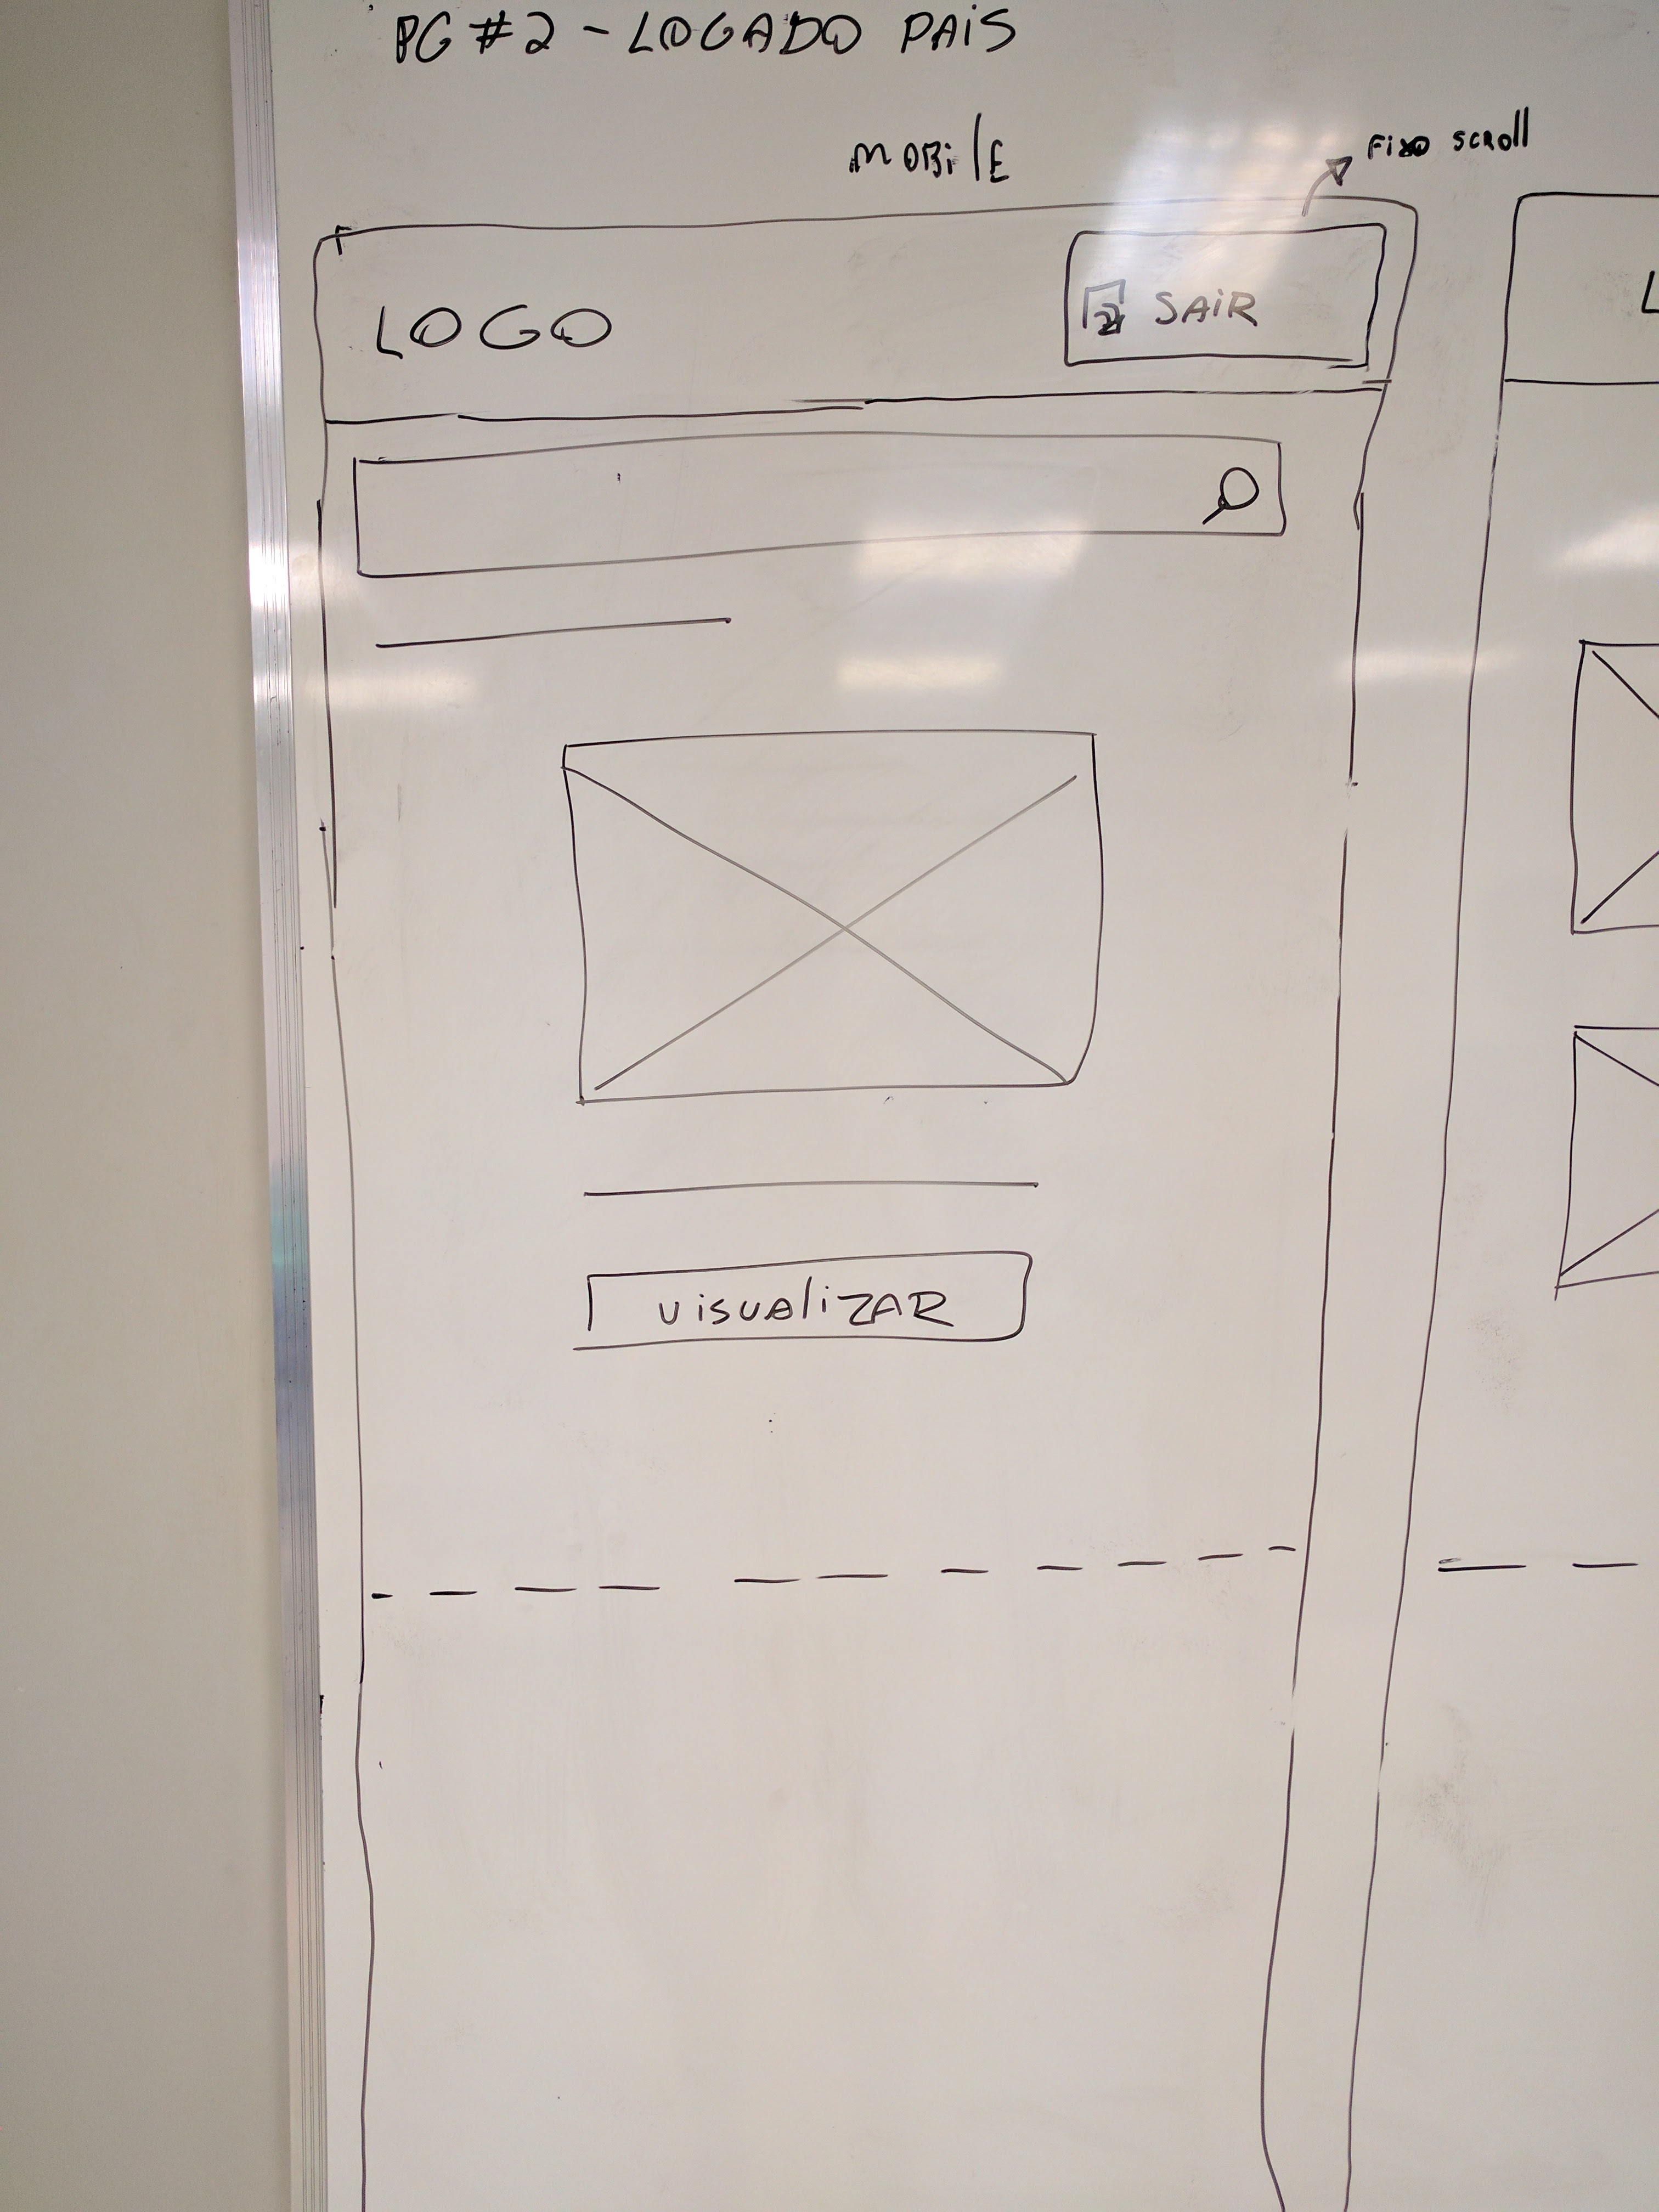 PG #2 - LOGADO PAIS
MOBILE
FIXO SCROLL
LOGO
SAIR
L
VISUALIZAR